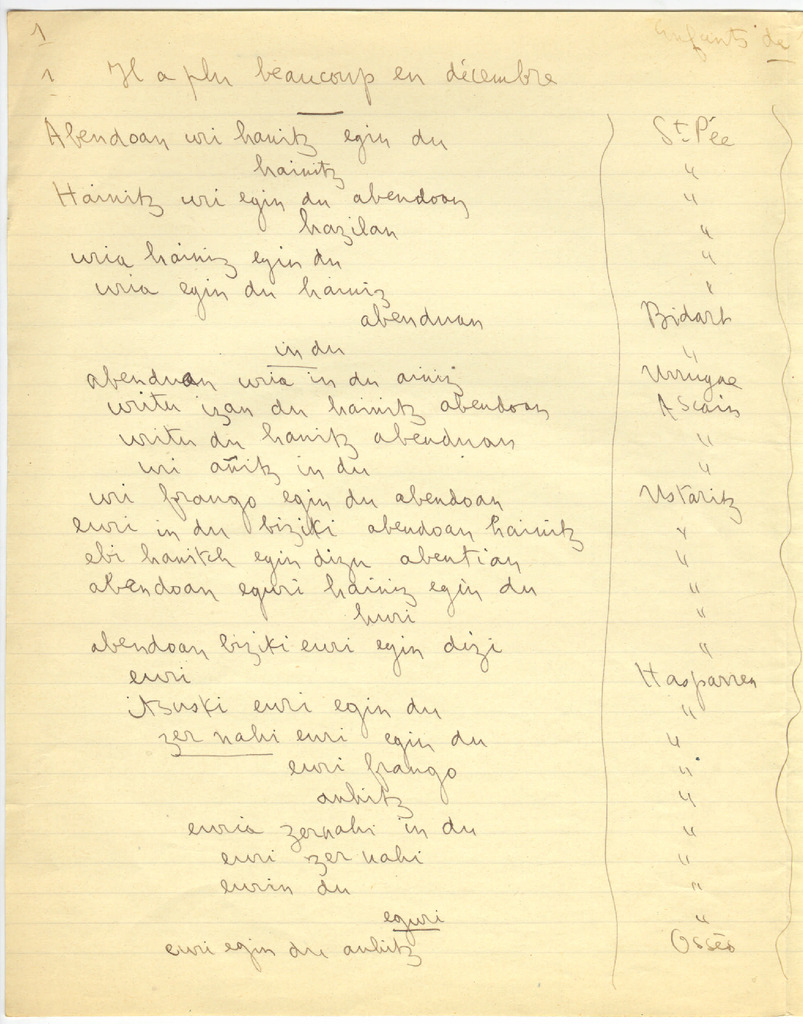 1 enfants de
1 Il a plu beaucoup en décembre
Abendoan uri hanitz egin du St. Pée
hainitz "
Hainitz uri egin du abendoan "
hazilan "
uria hainiz egin du "
uria egin du hainiz "
abenduan Bidart
in du "
abenduan uria in du ainiz Urrugne
uritu izan du hainitz abendoan Ascain
uritu du hanitz abenduan "
uri añitz in du "
uri frango egin du abendoan Ustaritz
euri in du biziki abendoan hainitz "
ebi hanitch egin dizu abentian "
abendoan eguri hainiz egin du "
huri "
abendoan biziki euri egin dizi "
euri Hasparren
itsuski euri egin du "
zer nahi euri egin du "
euri frango "
anhitz "
euria zernahi in du "
euri zer nahi "
eurin du "
eguri "
euri egin du anhitz Ossès